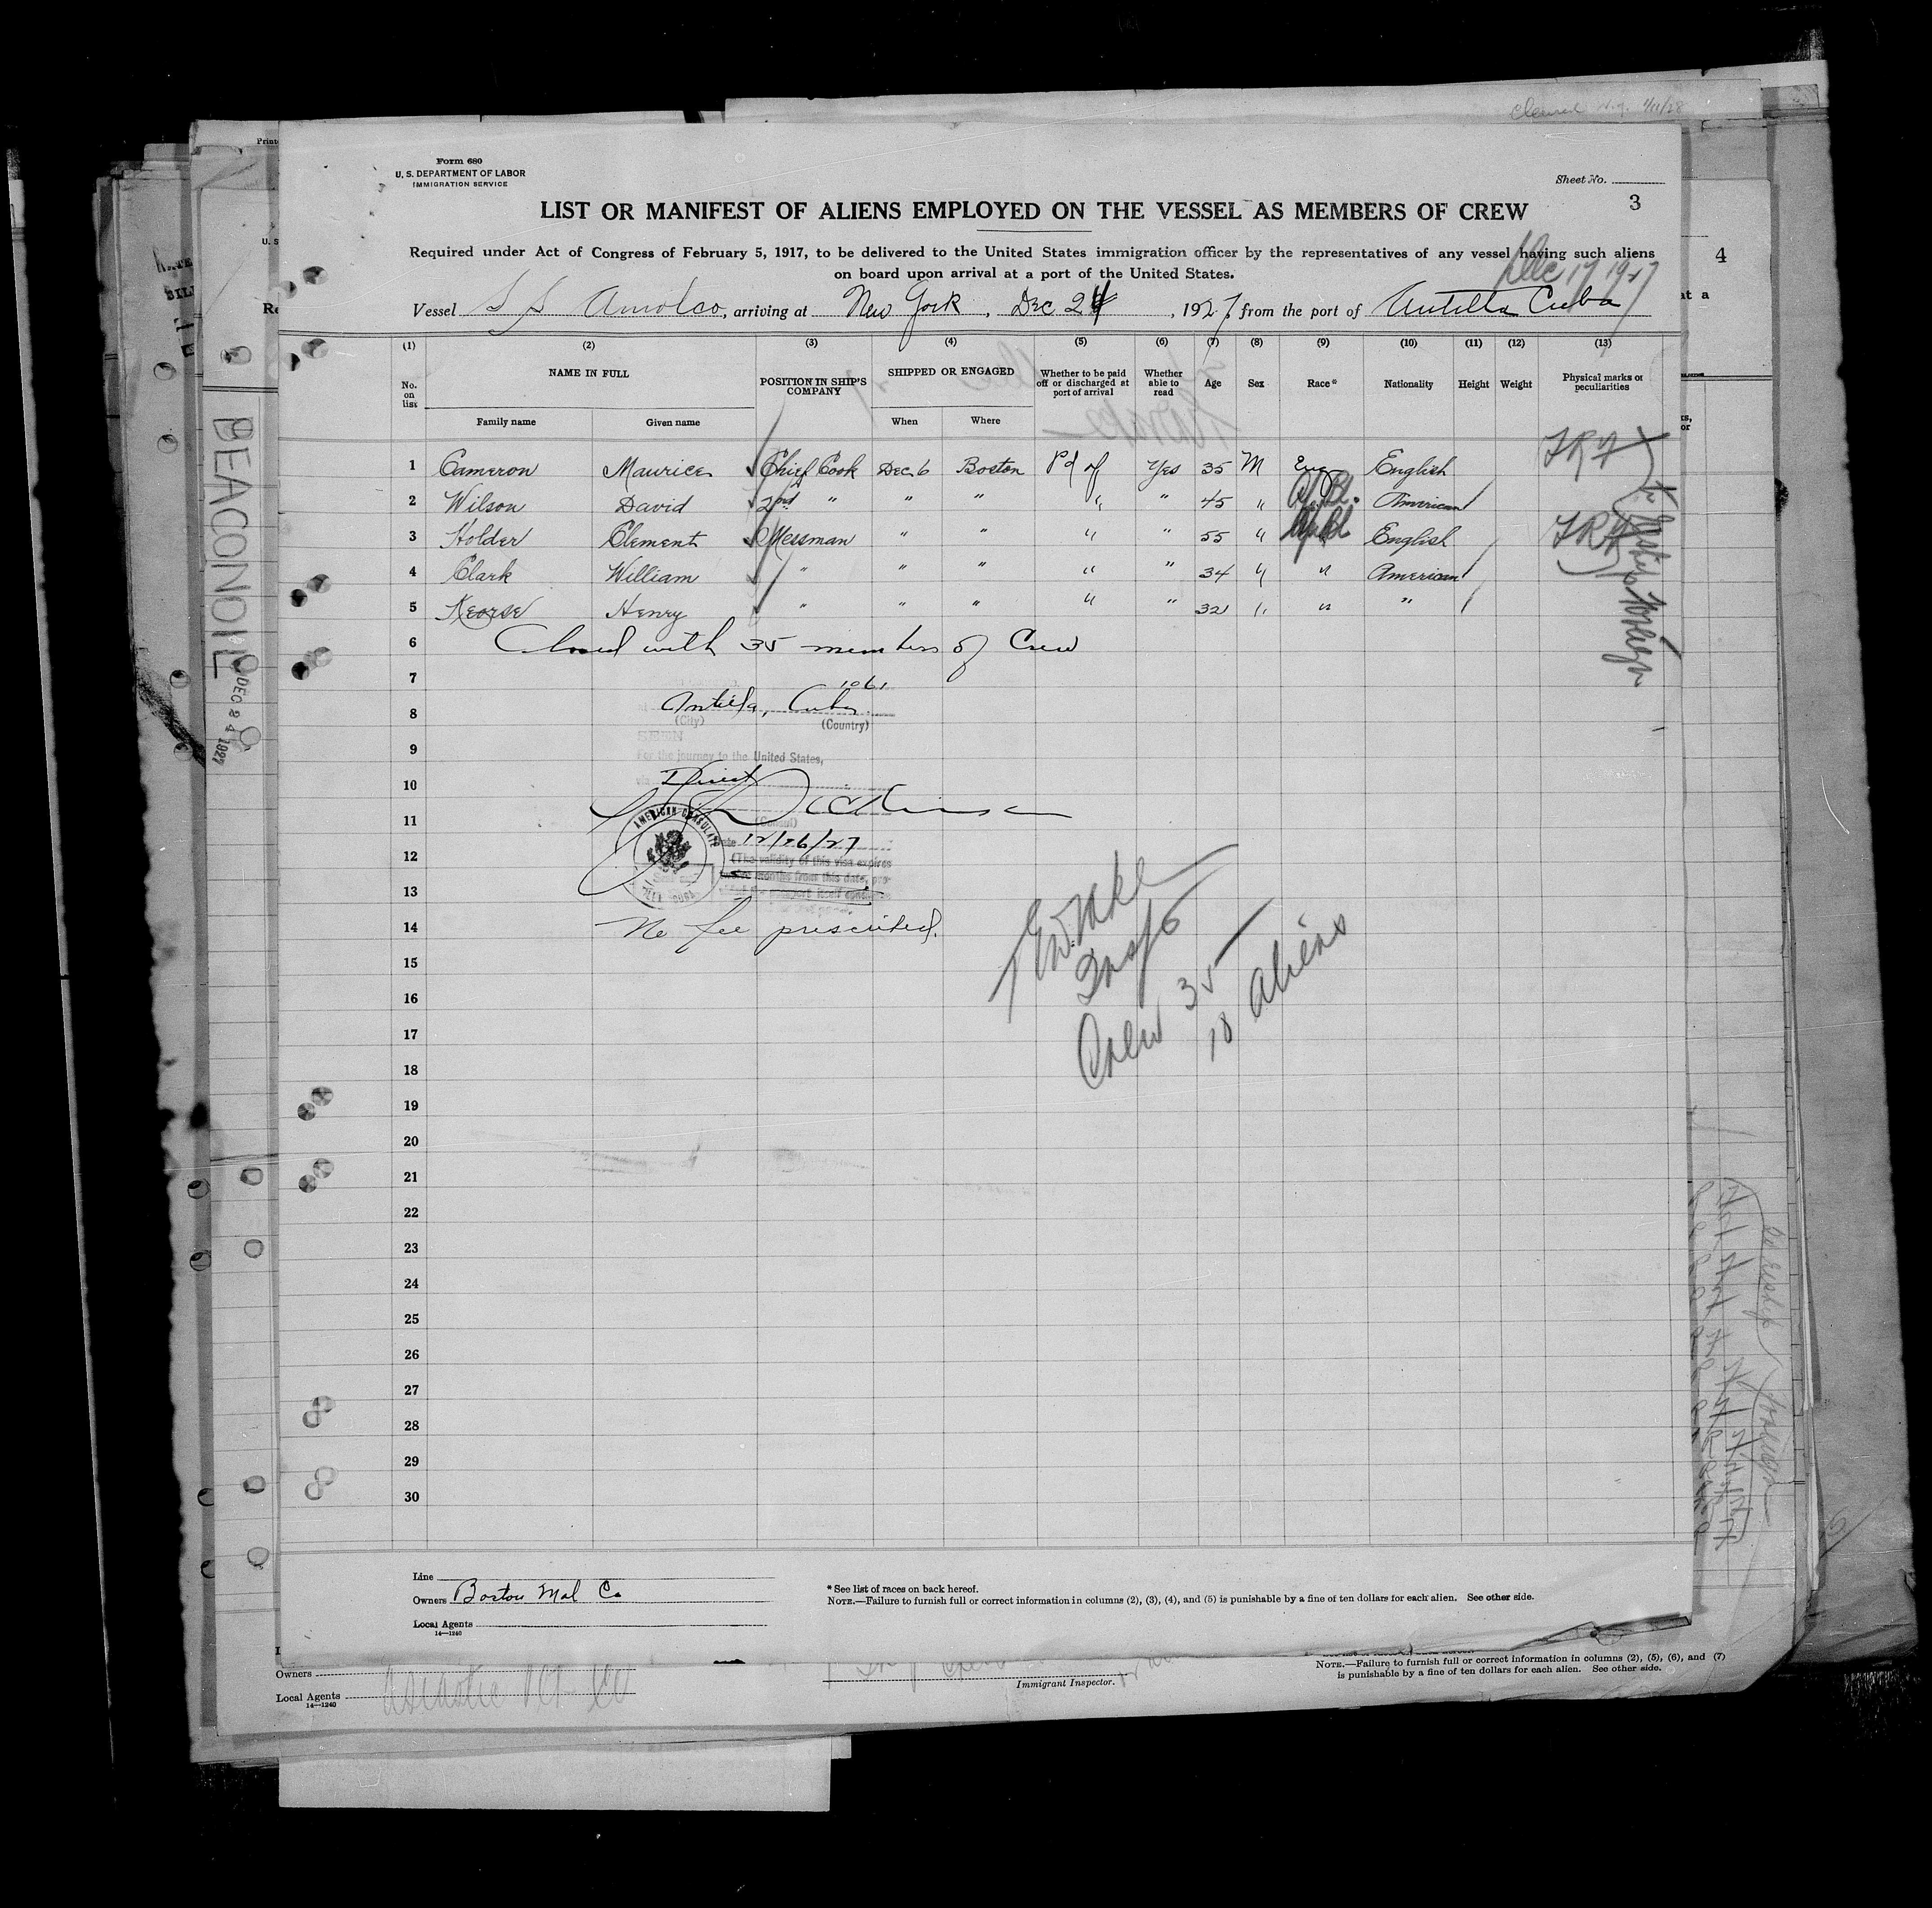 Form 680
U. S. DEPARTMENT OF LABOR
IMMIGRATION SERVICE
Sheet No.
3
LIST OR MANIFEST OF ALIENS EMPLOYED ON THE VESSEL AS MEMBERS OF CREW
Required under Act of Congress of February 5, 1917, to be delivered to the United States immigration officer by the representatives of any vessel having such aliens
on board upon arrival at a port of the United States.
Dec 17 1927
Vessel S S Amolco, arriving at New York, Dec 24, 1927 from the port of Antilla Cuba
(1) (2) (3) (4) (5) (6) (7) (8) (9) (10) (11) (12) (13)
No. on list NAME IN FULL POSITION IN SHIP'S COMPANY SHIPPED OR ENGAGED Whether to be paid off or discharged at port of arrival Whether able to read Age Sex Race* Nationality Height Weight Physical marks or peculiarities
Family name Given name When Where
1 Cameron Maurice Chief Cook Dec 6 Boston Pd off Yes 35 M Eng English
2 Wilson David 2nd " " " " " 45 " Af. Bl. American
3 Holder Clement Messman " " " " 55 " Af Bl English
4 Clark William " " " " " 34 " " American
5 Kearse Henry " " " " " 32 " " "
6 Closed with 35 members of Crew
7
8 Antilla, Cuba
(City) (Country)
SEEN
9 For the journey to the United States,
10 via Direct
11 (Consul)
AMERICAN CONSULATE
12 Date 12/16/27
(The validity of this visa expires
13 months from this date, pro-
14 No fee prescribed.
15
16
17
18
19
20
21
22
23
24
25
26
27
28
29
30
Insp
Crew 35
18 aliens
Line
Owners Boston Mol Co
Local Agents
14—1240
* See list of races on back hereof.
NOTE.—Failure to furnish full or correct information in columns (2), (3), (4), and (5) is punishable by a fine of ten dollars for each alien. See other side.
BEACONOIL
DEC 24 1927
4
Cleared N.Y.
Owners
Local Agents
14—1240
Immigrant Inspector.
NOTE.—Failure to furnish full or correct information in columns (2), (5), (6), and (7)
is punishable by a fine of ten dollars for each alien. See other side.